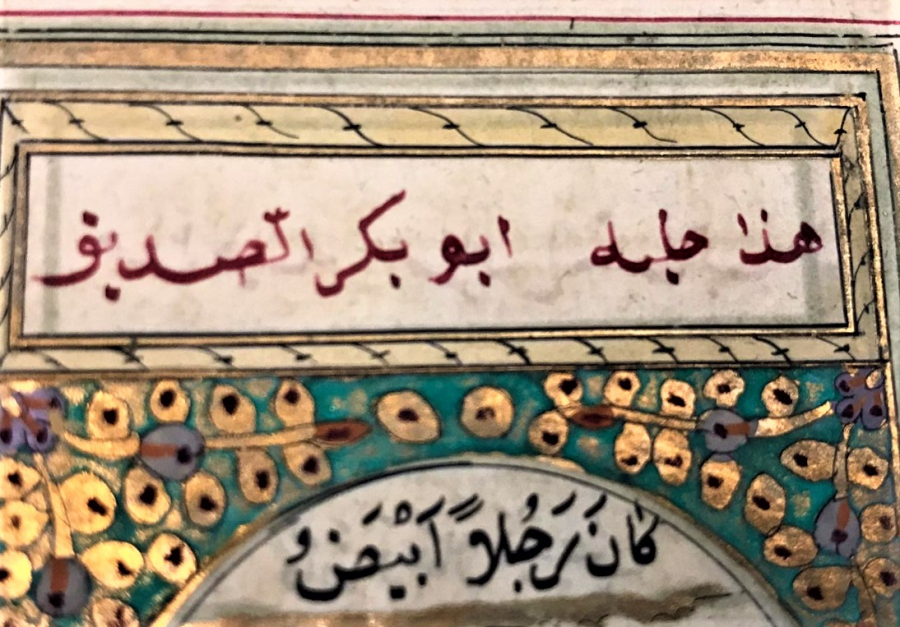 هذا حليه ابو بكر الصّديق
كَانَ رَجُلاً اَبْيَضَ وَ